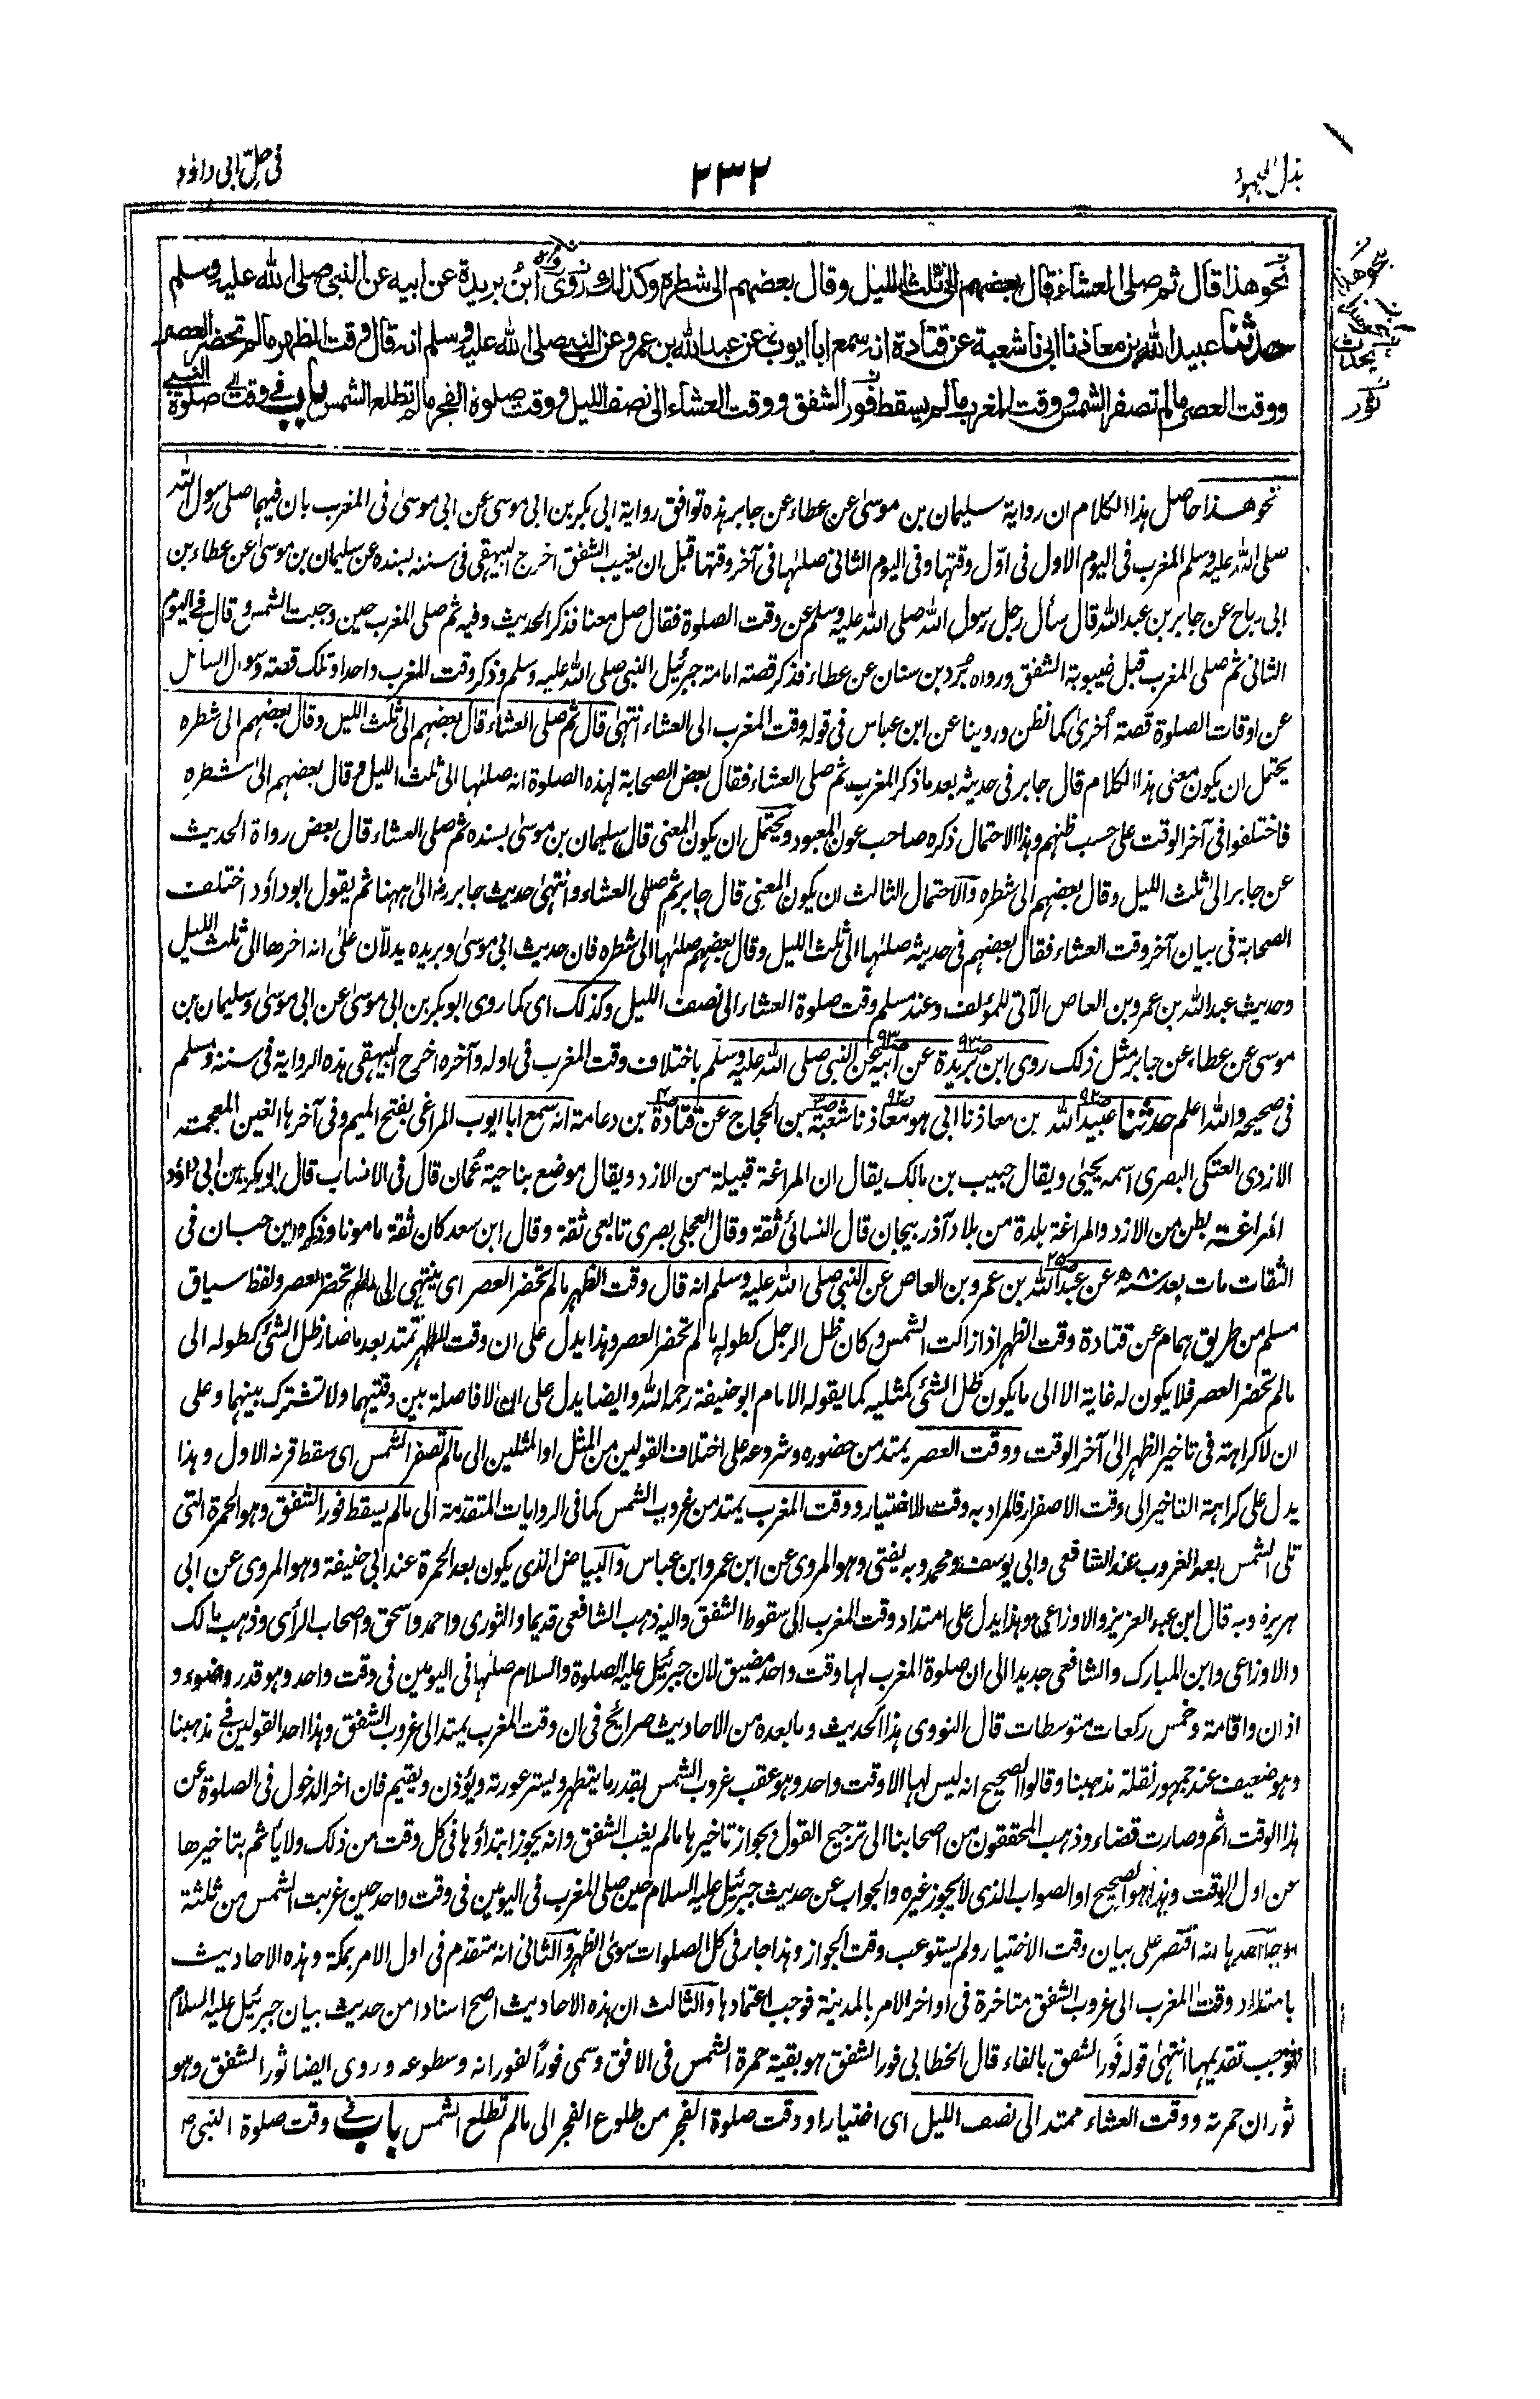 بذل المجهود
٢٣٢
فی حل ابی داؤد
نحو هذا قال ثم صلى العشاء قال بعضهم الى ثلث الليل وقال بعضهم الى شطره وكذلك روى ابن بريدة عن ابيه عن النبي صلى الله عليه وسلم
حدثنا عبيد الله بن معاذ نا ابى نا شعبة عن قتادة انه سمع ابا ايوب عن عبد الله بن عمرو عن النبي صلى الله عليه وسلم انه قال وقت الظهر ما لم تحضر العصر
ووقت العصر ما لم تصفر الشمس ووقت المغرب ما لم يسقط فور الشفق ووقت العشاء الى نصف الليل ووقت صلوة الفجر ما لم تطلع الشمس باب فى وقت صلوة النبى
نحو هذا حاصل هذا الكلام ان رواية سليمان بن موسىٰ عن عطاء عن جابر هذه توافق رواية ابى بكر بن ابى موسى عن ابى موسىٰ فى المغرب بان فيهما صلى رسول الله
صلى الله عليه وسلم المغرب فى اليوم الاول فى اوّل وقتها وفى اليوم الثانى صلٰها فى آخر وقتها قبل ان يغيب الشفق اخرج البيهقى فى سننه بسنده عن سليمان بن موسىٰ عن عطاء بن
ابى رباح عن جابر بن عبد الله قال سأل رجل رسول الله صلى الله عليه وسلم عن وقت الصلوة فقال صل معنا فذكر الحديث وفيه ثم صلى المغرب حين وجبت الشمس وقال فى اليوم
الثانى ثم صلى المغرب قبل غيبوبة الشفق ورواه بُرد بن سنان عن عطاء فذكر قصة امامة جبرئيل النبى صلى الله عليه وسلم وذكر وقت المغرب واحدا وتلك قصة وسوال السائل
عن اوقات الصلوة قصة اُخرىٰ كما نظن وروينا عن ابن عباس فى قوله وقت المغرب الى العشاء انتهىٰ قال ثم صلى العشاء قال بعضهم الى ثلث الليل وقال بعضهم الى شطره
يحتمل ان يكون معنى هذا الكلام قال جابر فى حديثه بعد ما ذكر المغرب ثم صلى العشاء فقال بعض الصحابة لهذه الصلوة انه صلٰها الى ثلث الليل وقال بعضهم الىٰ شطره
فاختلفوا فى آخر الوقت على حسب ظنهم وهذا الاحتمال ذكره صاحب عون المعبود ويحتمل ان يكون المعنى قال سليمان بن موسىٰ بسنده ثم صلى العشاء قال بعض رواة الحديث
عن جابر الىٰ ثلث الليل وقال بعضهم الى شطره والاحتمال الثالث ان يكون المعنى قال جابر ثم صلى العشاء وانتهىٰ حديث جابر الىٰ ههنا ثم يقول ابو داؤد اختلفت
الصحابة فى بيان آخر وقت العشاء فقال بعضهم فى حديثه صلٰها الى ثلث الليل وقال بعضهم صلٰها الى شطره فان حديث ابى موسىٰ وبريده يدلّان علىٰ انه اخرها الى ثلث الليل
وحديث عبد الله بن عمرو بن العاص الآتى للمؤلف وعند مسلم وقت صلوة العشاء الى نصف الليل وكذلك اى كما روى ابو بكر بن ابى موسىٰ عن ابى موسىٰ وسليمان بن
موسى عن عطاء عن جابر مثل ذلك روى ابن بريدة عن ابيه عن النبى صلى الله عليه وسلم باختلاف وقت المغرب فى اوله وآخره اخرج البيهقى هذه الرواية فى سننه ومسلم
فى صحيحه والله اعلم حدثنا عبيد الله بن معاذ نا ابى هو معاذ نا شعبة بن الحجاج عن قتادة بن دعامة انه سمع ابا ايوب المراغى بفتح الميم وفى آخرها الغين المعجمة
الازدى العتكى البصرى اسمه يحيىٰ ويقال حبيب بن مالك يقال ان المراغة قبيلة من الازد ويقال موضع بناحية عُمان قال فى الانساب قال ابو بكر بن ابى داؤد
المراغة بطن من الازد والمراغة بلدة من بلاد آذربيجان قال النسائى ثقة وقال العجلى بصرى تابعى ثقة وقال ابن سعد كان ثقة مامونا وذكره ابن حبان فى
الثقات مات بعد ٨٠ه عن عبد الله بن عمرو بن العاص عن النبى صلى الله عليه وسلم انه قال وقت الظهر ما لم تحضر العصر اى ينتهى الى ما لم تحضر العصر ولفظ سياق
مسلم من طريق همام عن قتادة وقت الظهر اذا زالت الشمس وكان ظل الرجل كطوله ما لم تحضر العصر وهذا يدل على ان وقت الظهر تمتد بعد ما صار ظل الشئ كطوله الى
ما لم تحضر العصر فلا يكون له غاية الا الى ما يكون ظل الشئ كمثليه كما يقوله الامام ابو حنيفة رحمه الله وايضا يدل على ان لا فاصلة بين وقتيهما ولا تشترك بينهما وعلى
ان لا كراهة فى تاخير الظهر الىٰ آخر الوقت ووقت العصر يمتد من حضوره وشروعه على اختلاف القولين من المثل او المثلين الى ما لم تصفر الشمس اى يسقط قرنه الاول وهذا
يدل على كراهة التاخير الى وقت الاصفرار فالمراد به وقت الاختيار ووقت المغرب يمتد من غروب الشمس كما فى الروايات المتقدمة الى ما لم يسقط فور الشفق وهو الحمرة التى
تلى الشمس بعد الغروب عند الشافعى وابى يوسف ومحمد وبه يفتى وهو المروى عن ابن عمر وابن عباس والبياض الذى يكون بعد الحمرة عند ابى حنيفة وهو المروى عن ابى
هريرة وبه قال ابن عبد العزيز والاوزاعى وهذا يدل على امتداد وقت المغرب الى سقوط الشفق واليه ذهب الشافعى قديما والثورى واحمد واسحق واصحاب الرأى وذهب مالك
والاوزاعى وابن المبارك والشافعى جديدا الى ان صلوة المغرب لها وقت واحد مضيق لان جبرئيل عليه الصلوة والسلام صلٰها فى اليومين فى وقت واحد وهو قدر وضوء و
اذان واقامة وخمس ركعات متوسطات قال النووى هذا الحديث وما بعده من الاحاديث صرايح فى ان وقت المغرب يمتد الى غروب الشفق وهذا احد القولين فى مذهبنا
وهو ضعيف عند جمهور نقلة مذهبنا وقالوا الصحيح انه ليس لها الا وقت واحد وهو عقب غروب الشمس بقدر ما يتطهر ويستر عورته ويؤذن ويقيم فان اخر الدخول فى الصلوة عن
هذا الوقت اثم وصارت قضاء وذهب المحققون من اصحابنا الى ترجيح القول بجواز تاخيرها ما لم يغب الشفق وانه يجوز ابتداؤها فى كل وقت من ذلك ولا يأثم بتاخيرها
عن اول الوقت وهذا هو الصحيح او الصواب الذى لا يجوز غيره والجواب عن حديث جبرئيل عليه السلام حين صلى المغرب فى اليومين فى وقت واحد حين غربت الشمس من ثلثة
اوجه احدها انه اقتصر على بيان وقت الاختيار ولم يستوعب وقت الجواز وهذا جار فى كل الصلوات سوى الظهر والثانى انه متقدم فى اول الامر بمكة وهذه الاحاديث
بامتداد وقت المغرب الى غروب الشفق متاخرة فى اواخر الامر بالمدينة فوجب اعتمادها والثالث ان هذه الاحاديث اصح اسنادا من حديث بيان جبرئيل عليه السلام
فوجب تقديمها انتهىٰ قوله فور الشفق بالفاء قال الخطابى فور الشفق هو بقية حمرة الشمس فى الافق وسمى فورًا لفورانه وسطوعه وروى ايضا ثور الشفق وهو
ثوران حمرته ووقت العشاء ممتد الى نصف الليل اى اختيارا ووقت صلوة الفجر من طلوع الفجر الى ما لم تطلع الشمس باب فى وقت صلوة النبى
نحو هذا
ثور